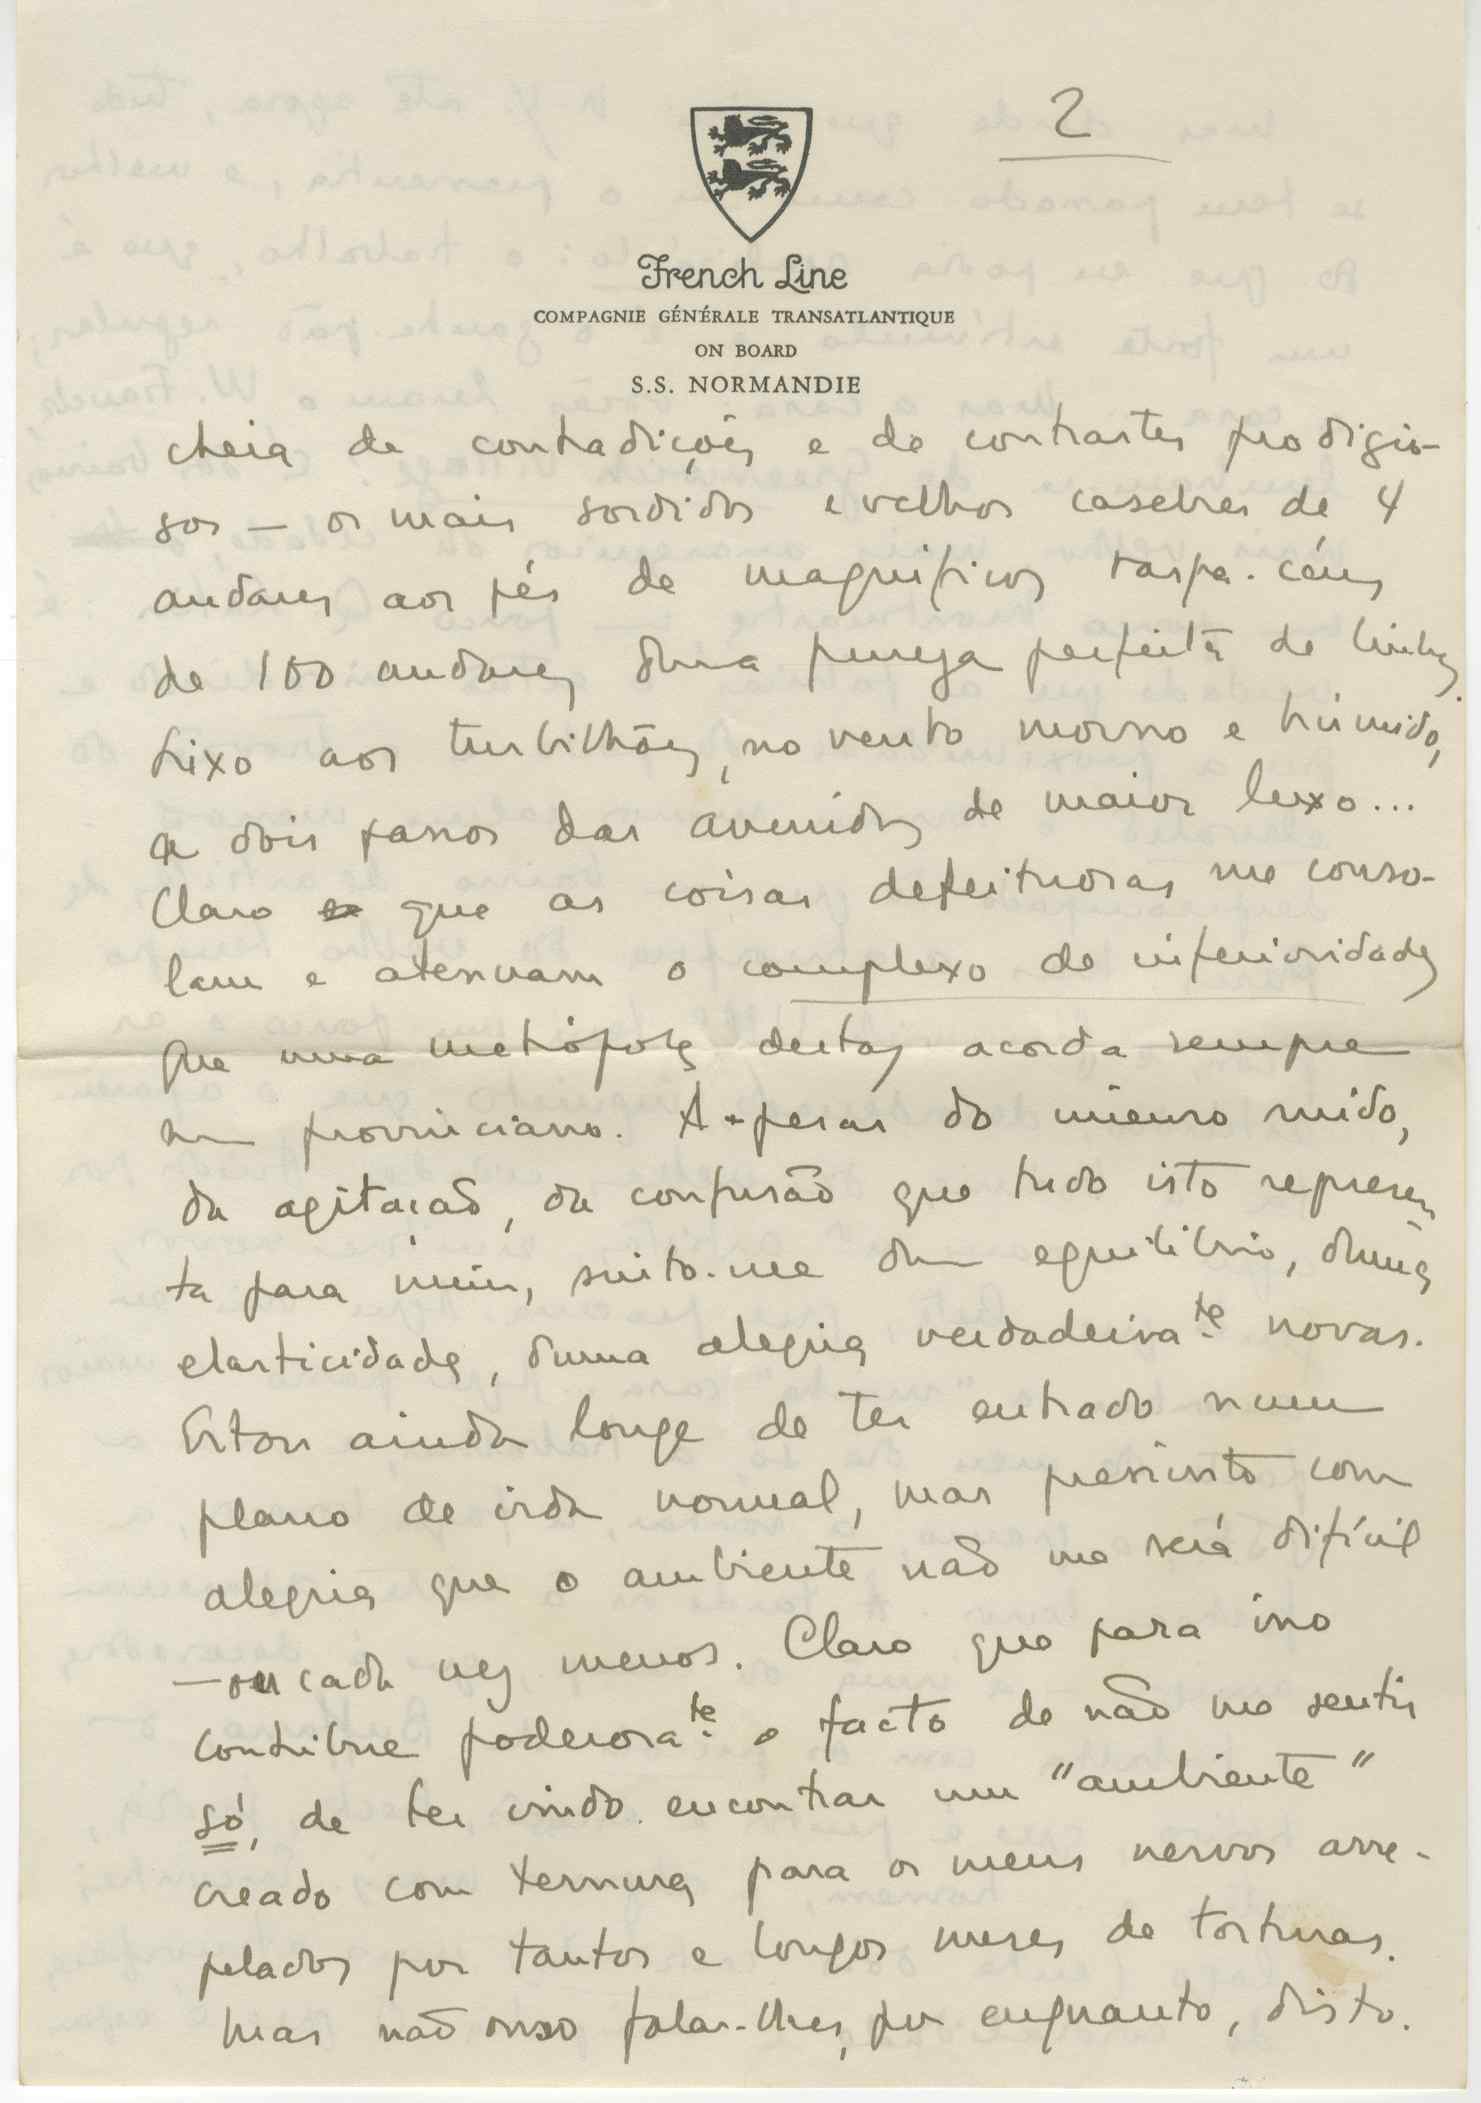 2
French Line
COMPAGNIE GÉNÉRALE TRANSATLANTIQUE
ON BOARD
S.S. NORMANDIE
cheia de contradições e de contrastes prodigio-
sos — os mais sordidos e velhos casebres de 4
andares aos pés de magnificos raspa-céus
de 100 andares duma pureza perfeita de linhas,
lixo aos turbilhões, no vento morno e húmido,
a dois passos das avenidas de maior luxo...
Claro que as coisas defeituosas me conso-
lam e atenuam o complexo de inferioridade
que uma metrópole destas acorda sempre
num provinciano. A-pesar do imenso ruido,
da agitação, da confusão que tudo isto represen-
ta para mim, sinto-me dum equilibrio, duma
elasticidade, duma alegria verdadeirate novas.
Estou ainda longe de ter entrado num
plano de vida normal, mas pressinto com
alegria que o ambiente não me será difícil
— ou cada vez menos. Claro que para isso
contribue poderosate o facto de não me sentir
só, de ter vindo encontrar um "ambiente"
creado com ternura para os meus nervos arre-
pelados por tantos e longos meses de torturas.
Mas não ouso falar-lhes, por enquanto, disto.